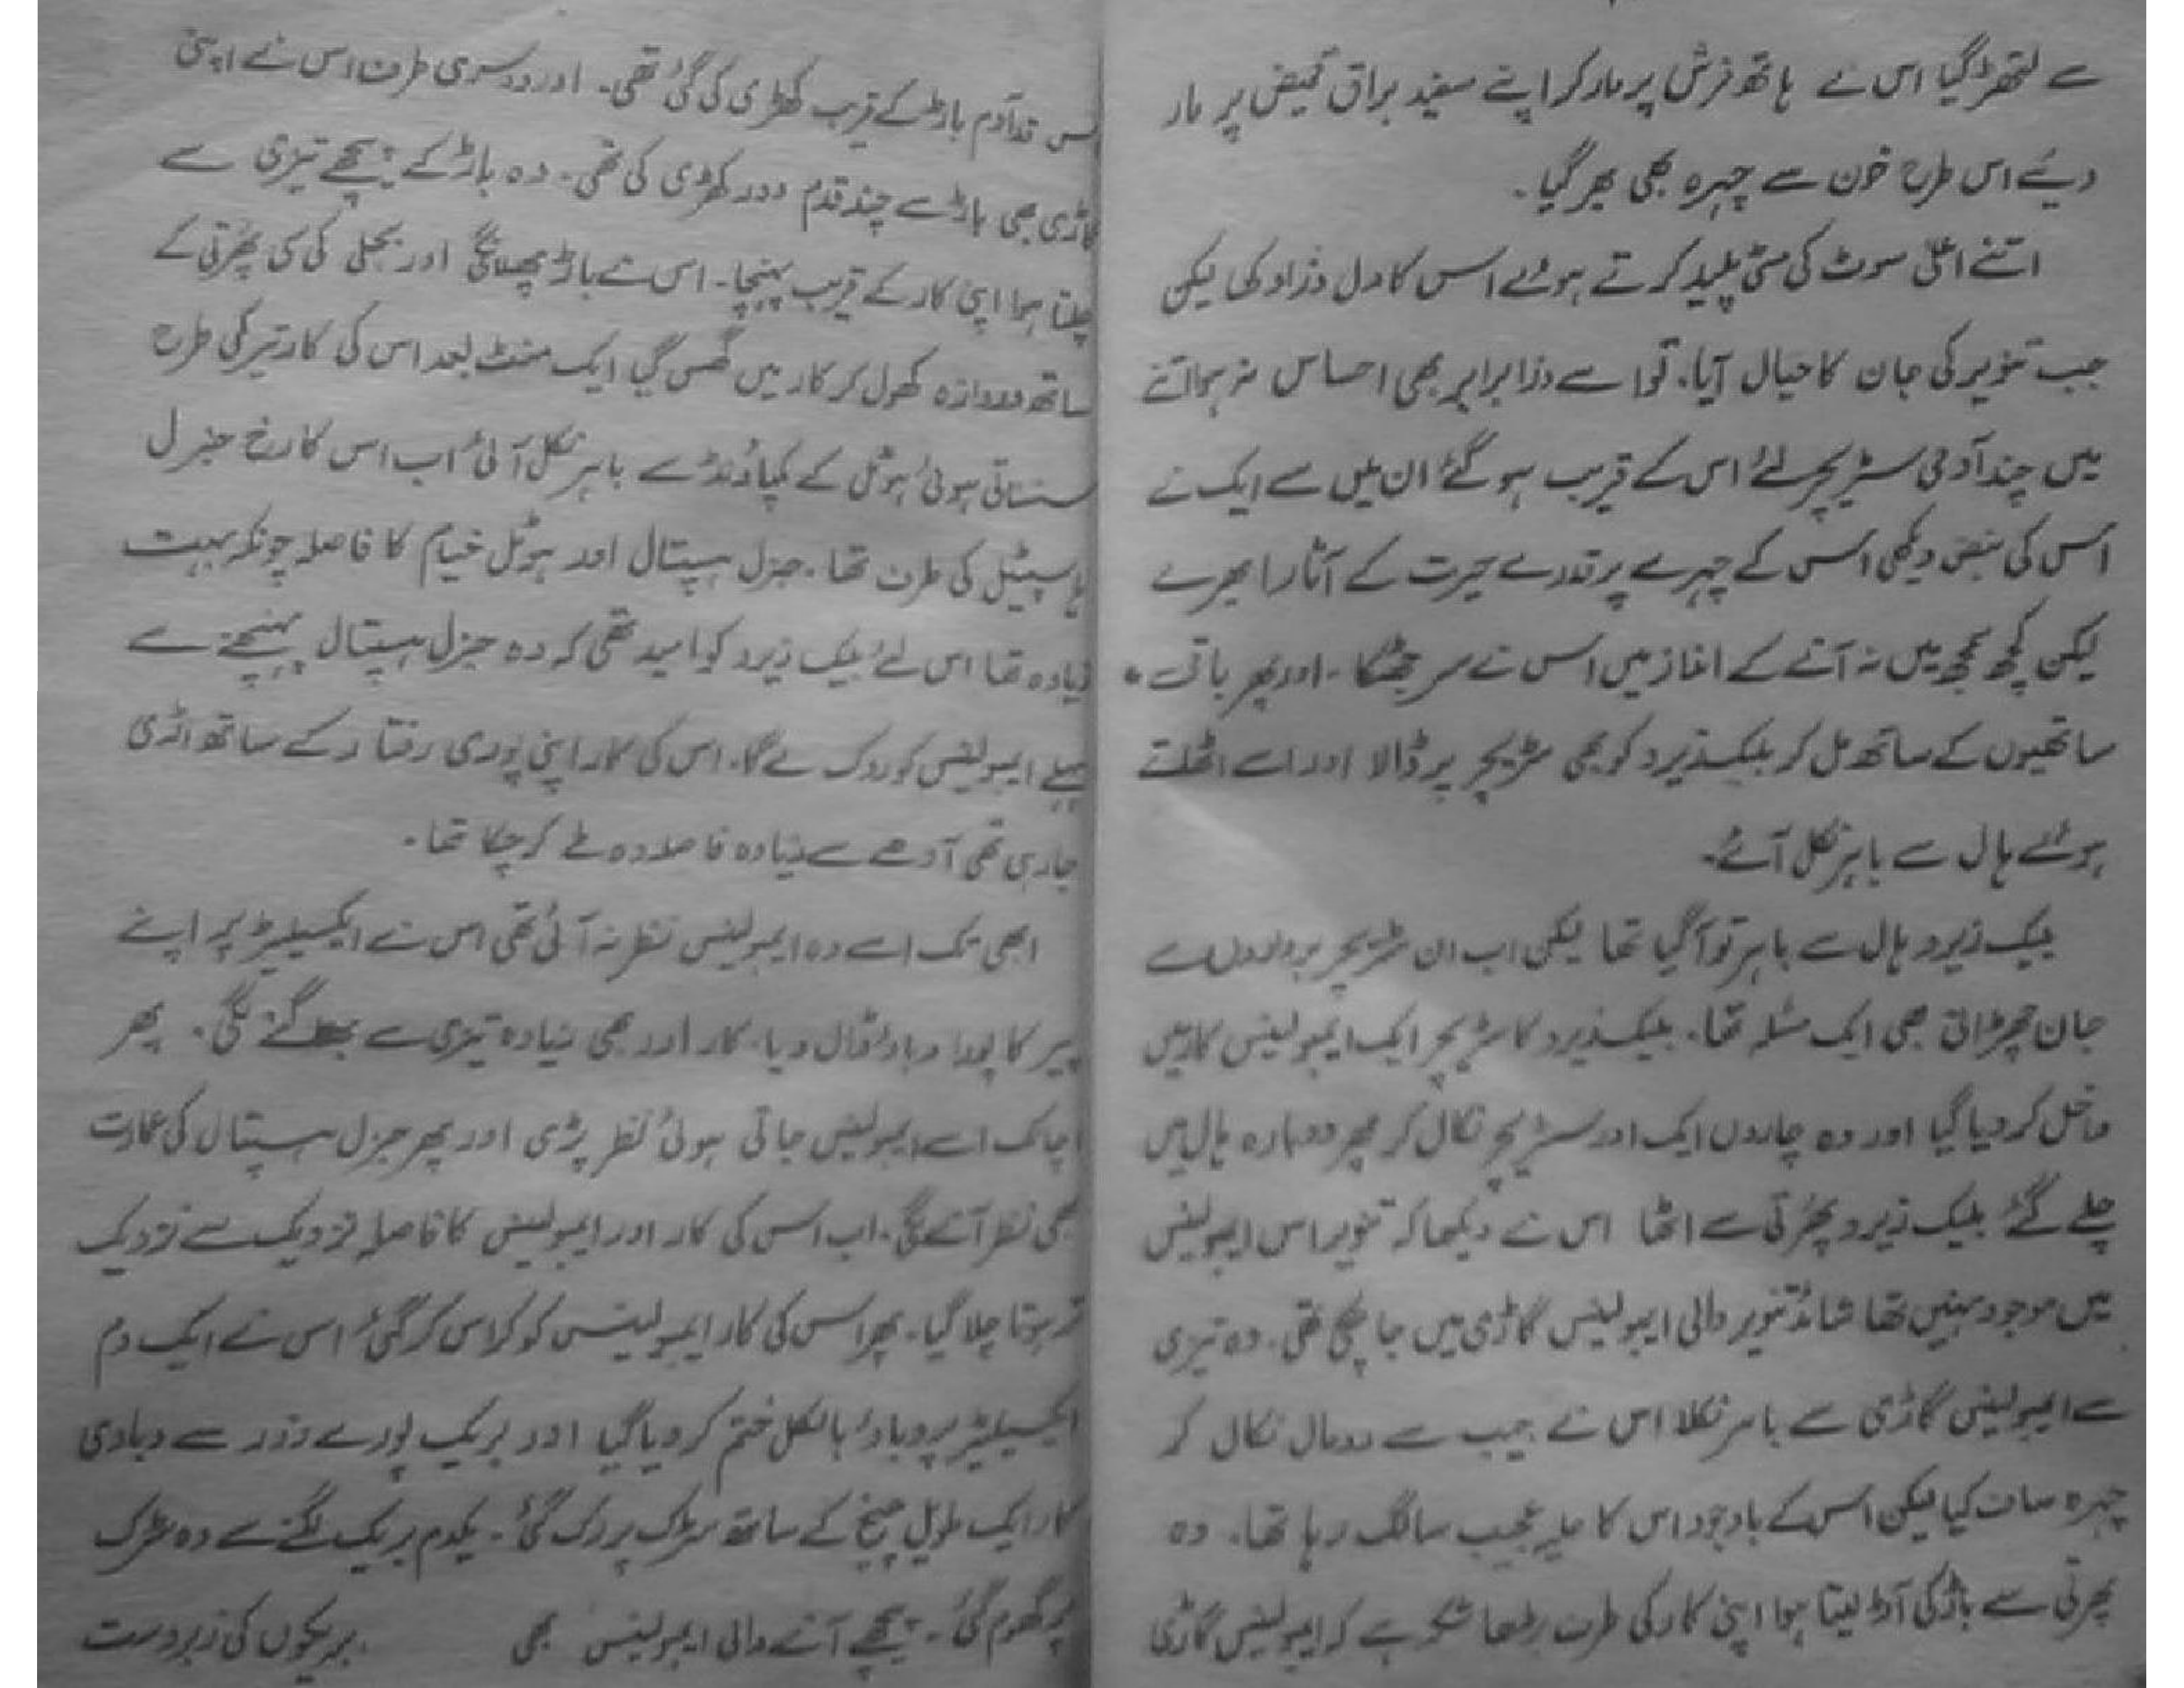 سے لتھڑ گیا اس نے ہاتھ فرش پر مار کر اپنے سفید براق قمیض پر مار
دیئے اس طرح خون سے چہرہ بھی بھر گیا۔
اتنے اعلیٰ سوٹ کی مٹی پلید کرتے ہوئے اس کا دل تو ذرا دکھا لیکن
جب تنویر کی جان کا خیال آیا۔ تو اسے ذرا برابر بھی احساس نہ ہوا اتنے
میں چند آدمی سٹریچر لئے اس کے قریب ہو گئے ان میں سے ایک نے
اس کی نبض دیکھی اس کے چہرے پر قدرے حیرت کے آثار ابھرے
لیکن کچھ سمجھ میں نہ آنے کے انداز میں اس نے سر جھٹکا۔ اور پھر باقی
ساتھیوں کے ساتھ مل کر بلیک زیرو کو بھی سٹریچر پر ڈالا اور اسے اٹھاتے
ہوئے ہال سے باہر نکل آئے۔
بلیک زیرو ہال سے باہر تو آ گیا تھا لیکن اب ان سٹریچر برداروں سے
جان چھڑانی بھی ایک مسئلہ تھا۔ بلیک زیرو کا سٹریچر ایک ایمبولینس کار میں
داخل کر دیا گیا اور وہ چاروں ایک اور سٹریچر نکال کر پھر دوبارہ ہال میں
چلے گئے بلیک زیرو پھرتی سے اٹھا اس نے دیکھا کہ تنویر اس ایمبولینس
میں موجود نہیں تھا شائد تنویر والی ایمبولینس گاڑی میں جا چکی تھی۔ وہ تیزی
سے ایمبولینس گاڑی سے باہر نکلا اس نے جیب سے رومال نکال کر
چہرہ صاف کیا لیکن اس کے باوجود اس کا حلیہ عجیب سا لگ رہا تھا۔ وہ
پھرتی سے باڑ کی آڑ لیتا ہوا اپنی کار کی طرف بڑھا شکر ہے کہ ایمبولینس گاڑی
اس قد آدم باڑ کے قریب کھڑی کی گئی تھی۔ اور دوسری طرف اس نے اپنی
گاڑی بھی باڑ سے چند قدم دور کھڑی کی تھی۔ وہ باڑ کے پیچھے تیزی سے
چلتا ہوا اپنی کار کے قریب پہنچا۔ اس نے باڑ پھلانگی اور بجلی کی سی پھرتی کے
ساتھ دروازہ کھول کر کار میں گھس گیا ایک منٹ بعد اس کی کار تیر کی طرح
سنسناتی ہوئی ہوٹل کے کمپاؤنڈ سے باہر نکل آئی اب اس کا رخ جنرل
ہاسپیٹل کی طرف تھا۔ جنرل ہسپتال اور ہوٹل خیام کا فاصلہ چونکہ بہت
زیادہ تھا اس لئے بلیک زیرو کو امید تھی کہ وہ جنرل ہسپتال پہنچنے سے
پہلے ایمبولینس کو روک لے گا۔ اس کی کار اپنی پوری رفتار کے ساتھ اڑی
جا رہی تھی آدھے سے زیادہ فاصلہ وہ طے کر چکا تھا۔
ابھی تک اسے وہ ایمبولینس نظر نہ آئی تھی اس نے ایکسیلیٹر پر اپنے
پیر کا پورا دباؤ ڈال دیا۔ کار اور بھی زیادہ تیزی سے بھاگنے لگی۔ پھر
اچانک اسے ایمبولینس جاتی ہوئی نظر پڑی اور پھر جنرل ہسپتال کی عمارت
بھی نظر آنے لگی۔ اب اس کی کار اور ایمبولینس کا فاصلہ نزدیک سے نزدیک
تر ہوتا چلا گیا۔ پھر اس کی کار ایمبولینس کو کراس کر گئی اس نے ایک دم
ایکسیلیٹر پر دباؤ بالکل ختم کر دیا گیا اور بریک پورے زور سے دبا دی
کار ایک طویل چیخ کے ساتھ سڑک پر رک گئی۔ یکدم بریک لگنے سے وہ سڑک
پر گھوم گئی۔ پیچھے آنے والی ایمبولینس بھی بریکوں کی زبردست